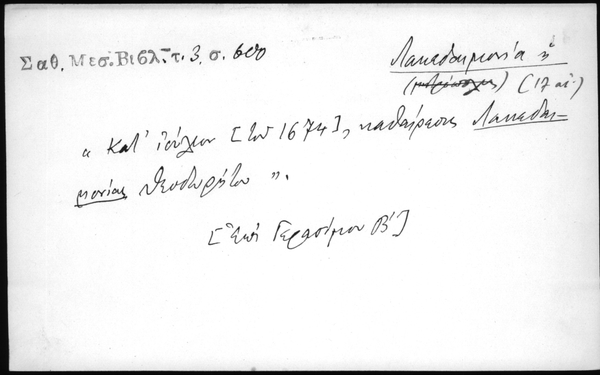 Σαθ. Μεσ. Βιβλ. τ. 3. σ. 600
Λακεδαιμονία ἡ
(μητρόπολις) (17 αἰ.)
„ Κατ' ἰούλιον [τοῦ 1674], καθαίρεσις Λακεδαι-
μονίας Θεοδωρήτου ".
[Ἐπὶ Γερασίμου Β']